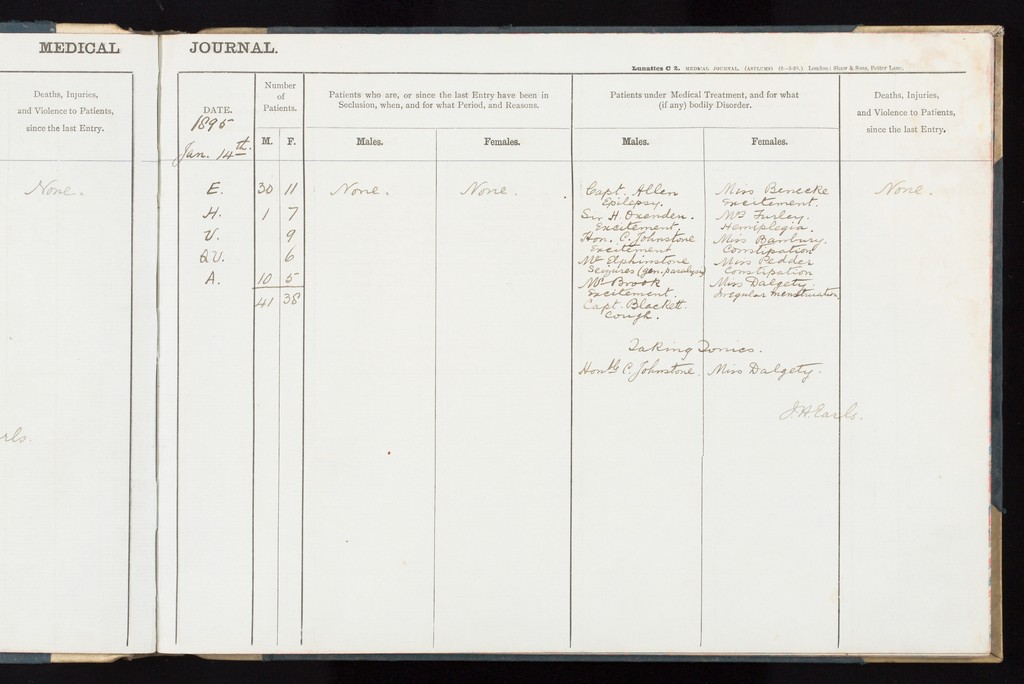 MEDICAL
JOURNAL.
Lunatics C 2. MEDICAL JOURNAL. (ASYLUMS) London: Shaw & Sons, Fetter Lane.
Deaths, Injuries,
and Violence to Patients,
since the last Entry.
None.
rls.
DATE.
1895
Jan. 14th.
Number
of
Patients.
M. F.
Patients who are, or since the last Entry have been in
Seclusion, when, and for what Period, and Reasons.
Males. Females.
Patients under Medical Treatment, and for what
(if any) bodily Disorder.
Males. Females.
Deaths, Injuries,
and Violence to Patients,
since the last Entry.
E. 30 11
H. 1 7
V. 9
QV. 6
A. 10 5
41 38
None. None.
Capt. Allen
Epilepsy.
Sir H. Oxenden.
Excitement.
Hon. C. Johnstone
Excitement
Mr Elphinstone
Seizures (gen. paralysis)
Mr Brook
Excitement.
Capt. Blackett.
Cough.
Miss Benecke
Excitement.
Mrs Furley.
Hemiplegia.
Miss Banbury.
Constipation
Miss Pedder
Constipation
Miss Dalgety.
Irregular menstruation
None.
Taking Tonics.
Honble C. Johnstone. Miss Dalgety.
J.H. Earls.